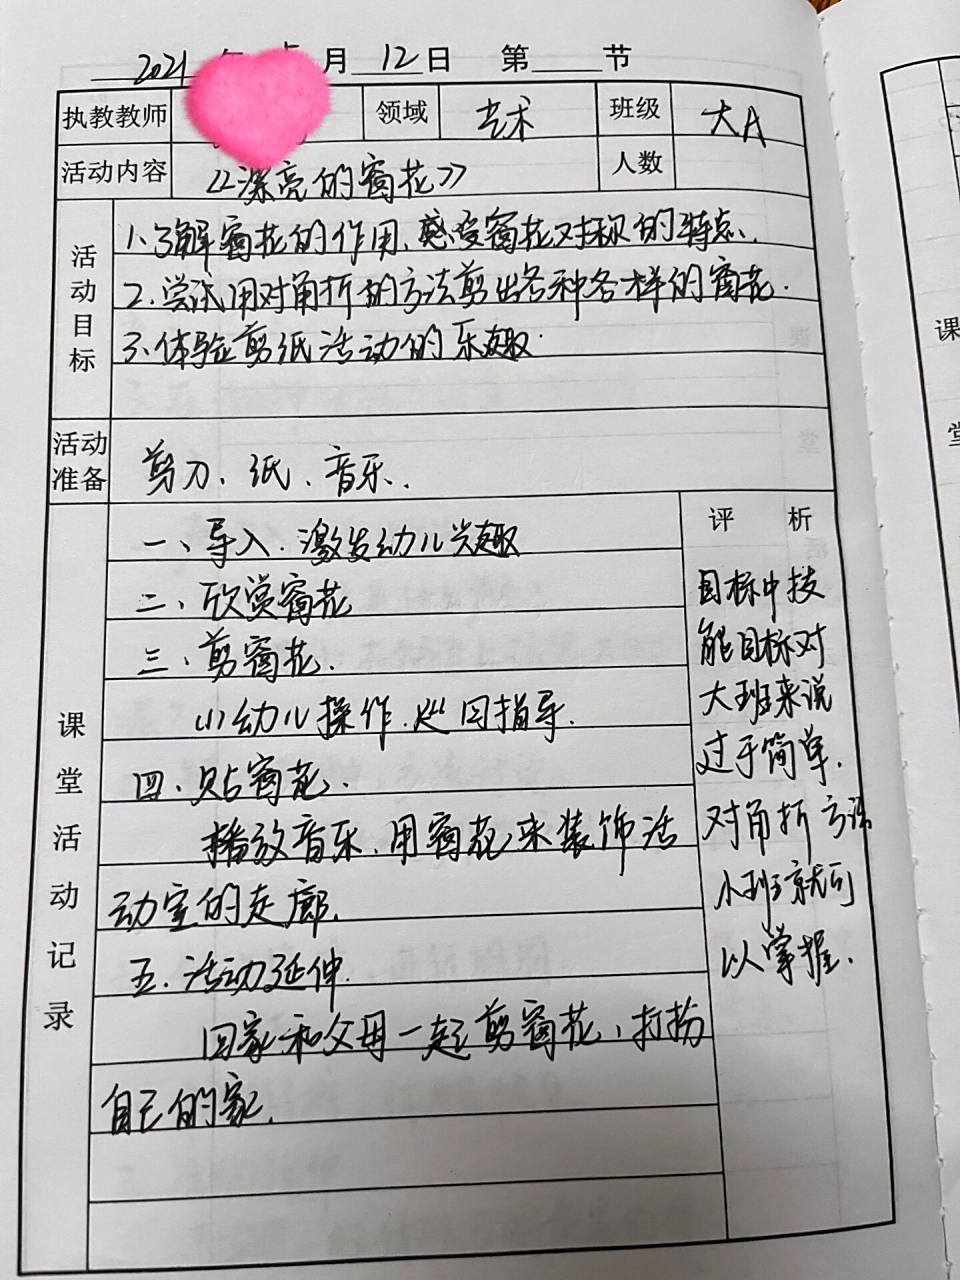 2021年5月12日 第 节
执教教师 领域 艺术 班级 大A
活动内容 《漂亮的窗花》 人数
活动目标
1、了解窗花的作用、感受窗花对称的特点.
2.尝试用对角折的方法剪出各种各样的窗花.
3.体验剪纸活动的乐趣.
活动准备
剪刀、纸、音乐.
课堂活动记录
一、导入.激发幼儿兴趣
二、欣赏窗花
三、剪窗花.
(1)幼儿操作.巡回指导.
四.贴窗花.
播放音乐.用窗花来装饰活
动室的走廊.
五.活动延伸.
回家和父母一起剪窗花、打扮
自己的家.
评 析
目标中技
能目标对
大班来说
过于简单.
对角折方法
小班就可
以掌握.
课
堂